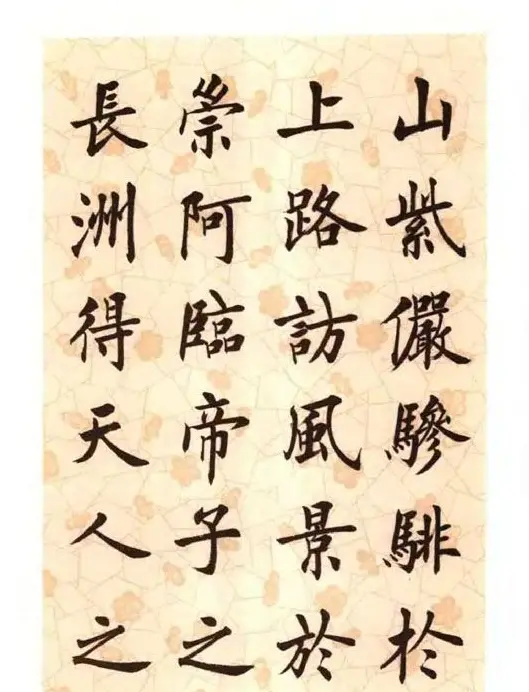 山紫儼驂騑於
上路訪風景於
崇阿臨帝子之
長洲得天人之